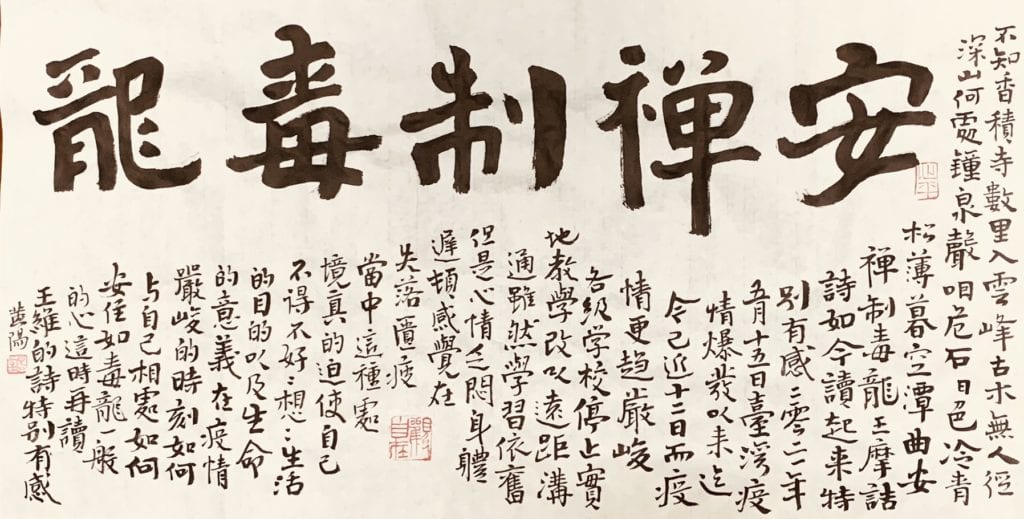 安禪制毒龍
不知香積寺數里入雲峰古木無人徑
深山何處鐘泉聲咽危石日色冷青
松薄暮空潭曲安
禪制毒龍王摩詰
詩如今讀起來特
別有感二零二一年
五月十五日臺灣疫
情爆發以來迄
今已近十二日而疫
情更趨嚴峻
各級学校停止實
地教学改以遠距溝
通雖然学習依舊
但是心情乏悶身體
遲頓感覺在
失落匱疲
當中這種處
境真的迫使自己
不得不好々想々生活
的目的以及生命
的意義在疫情
嚴峻的時刻如何
与自己相處如何
安住如毒龍一般
的心這時再讀
王維的詩特別有感